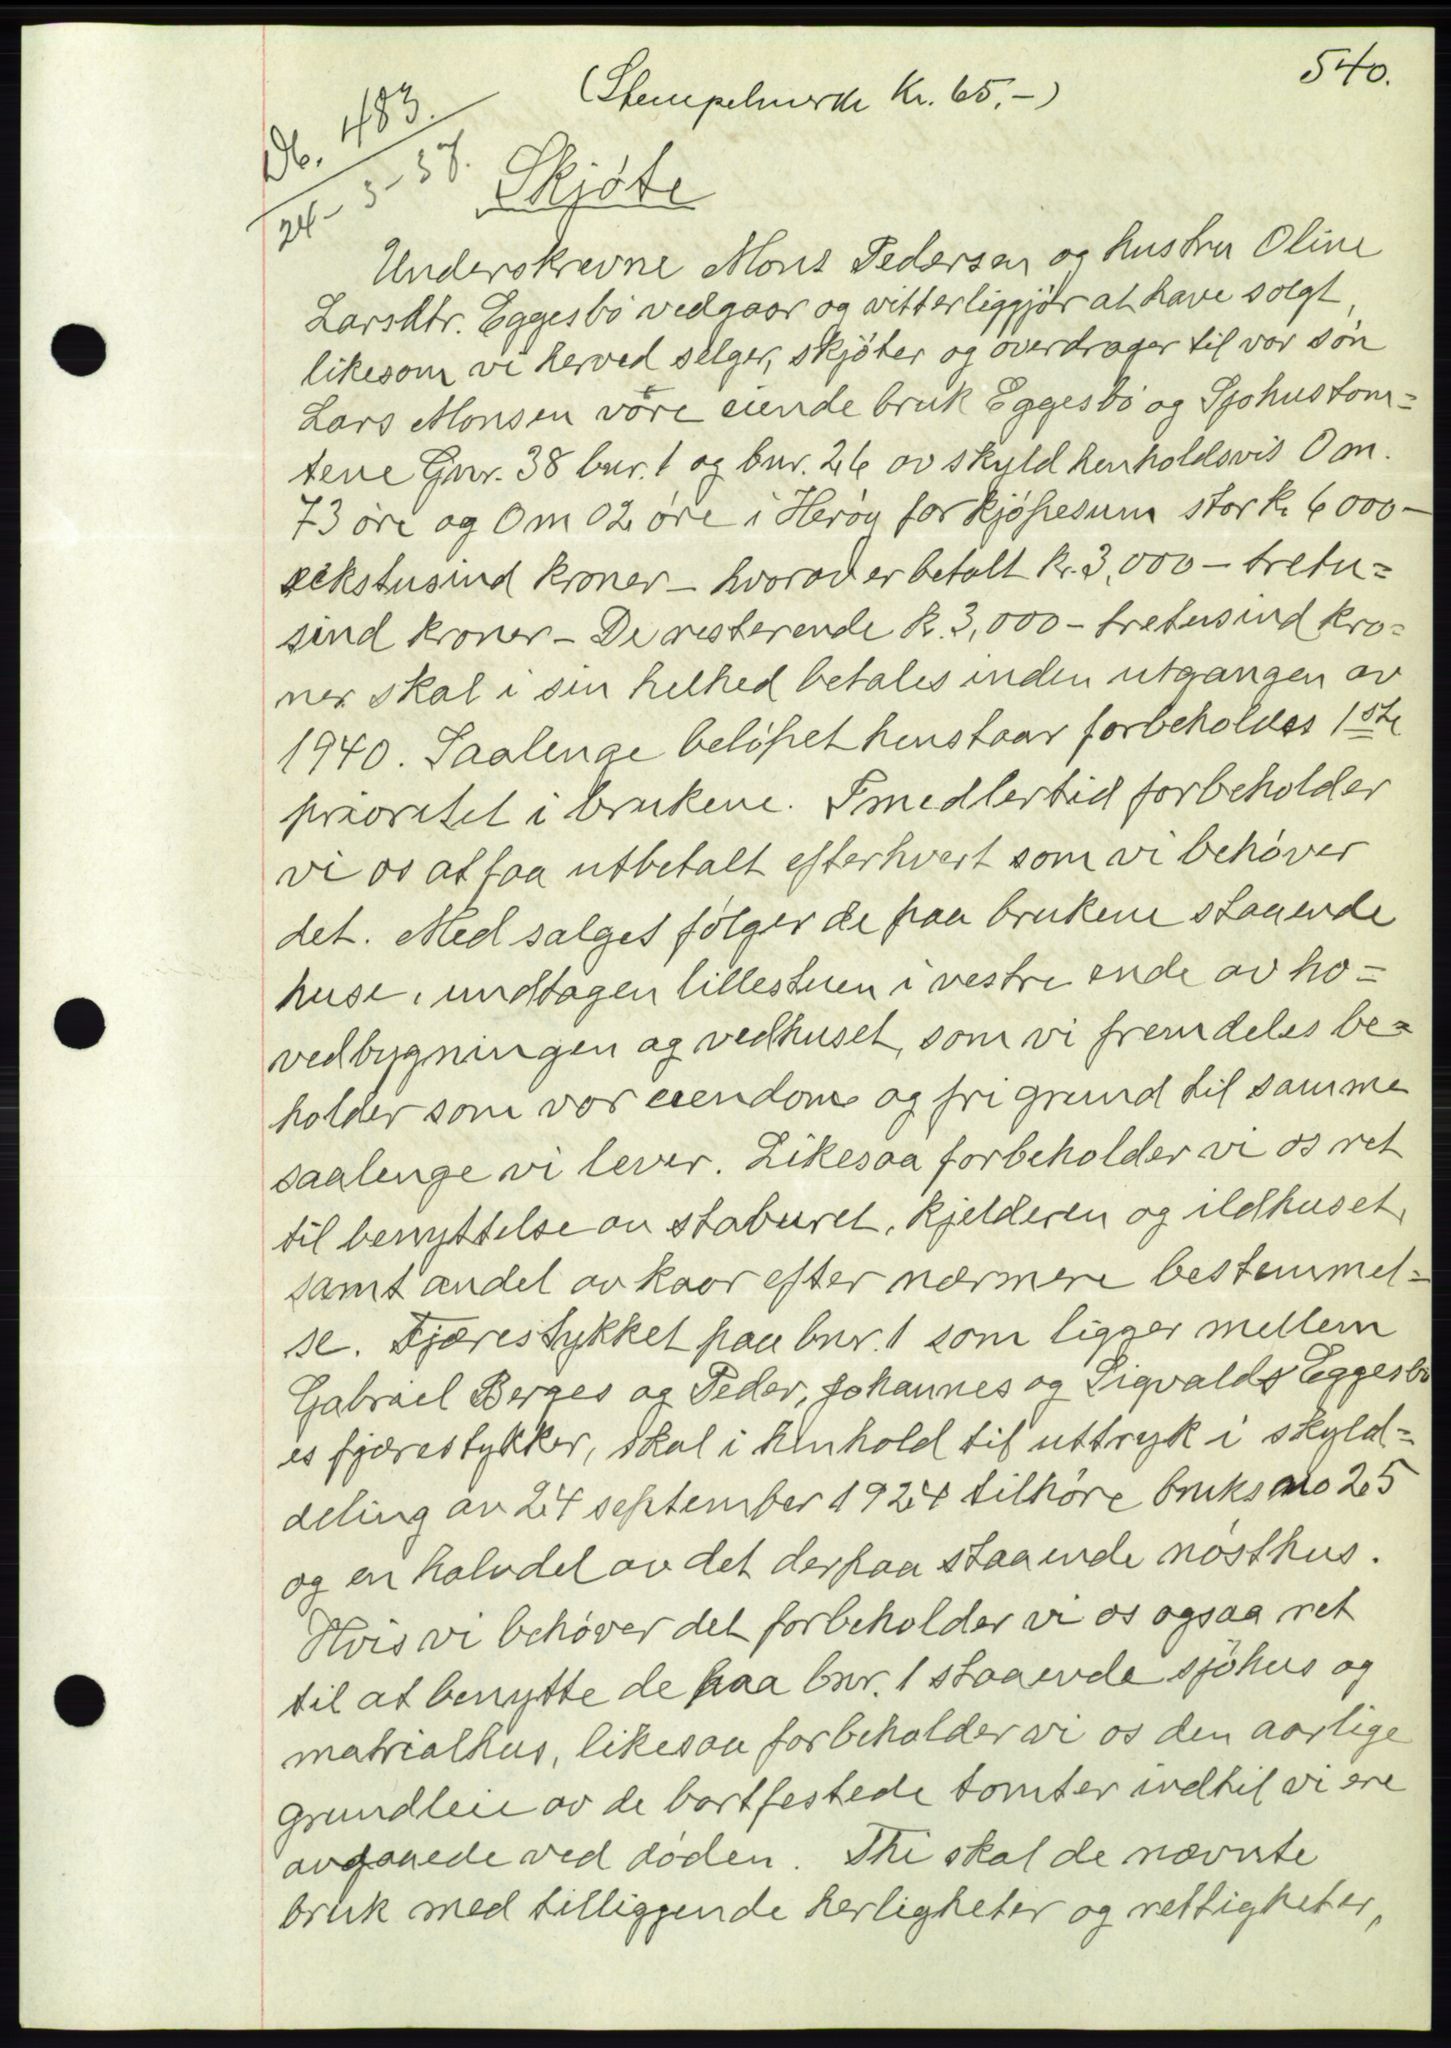 540.
(Stempelmerke Kr. 65.-)
Db. 483.
24-3-37.
Skjøte
Underskrevne Mons Pedersen og hustru Oline
Larsdtr. Eggesbø vedgaar og vitterliggjør at have solgt,
likesom vi herved selger, skjøter og overdrager til vor søn
Lars Monsen vöre eiende bruk Eggesbø og Sjøhustom=
tene Gnr. 38 bnr. 1 og bnr. 26 av skyld henholdsvis 0 m.
73 øre og 0 m 02 øre i Herøy for kjøpesum stor kr. 6000-
sekstusind kroner - hvorav er betalt kr. 3,000 - tretu=
sind kroner - De resterende kr. 3,000 - tretusind kro=
ner skal i sin helhed betales inden utgangen av
1940. Saalenge beløpet henstaar forbeholdes 1ste
prioritet i brukene. Imedlertid forbeholder
vi os at faa utbetalt efterhvert som vi behøver
det. Med salget følger de paa brukene staaende
huse, undtagen lillestuen i vestre ende av ho=
vedbygningen og vedhuset, som vi fremdeles be=
holder som vor eiendom og fri grund til samme
saalenge vi lever. Likesaa forbeholder vi os ret
til benyttelse av staburet, kjelderen og ildhuset,
samt andel av kaar efter nærmere bestemmel=
se. Fjærestykket paa bnr. 1 som ligger mellem
Gabriel Berges og Peder, Johannes og Sigvalds Eggesbø
es fjærestykker, skal i henhold til uttryk i skyld=
deling av 24 september 1924 tilhøre bruks no 25
og en halvdel av det derpaa staaende nøsthus.
Hvis vi behøver det forbeholder vi os ogsaa ret
til at benytte de paa bnr. 1 staaende sjøhus og
matrialhus, likesaa forbeholder vi os den aarlige
grundleie av de bortfestede tomter indtil vi ere
avgaaede ved døden. Thi skal de nævnte
bruk med tilliggende herligheter og rettigheter,